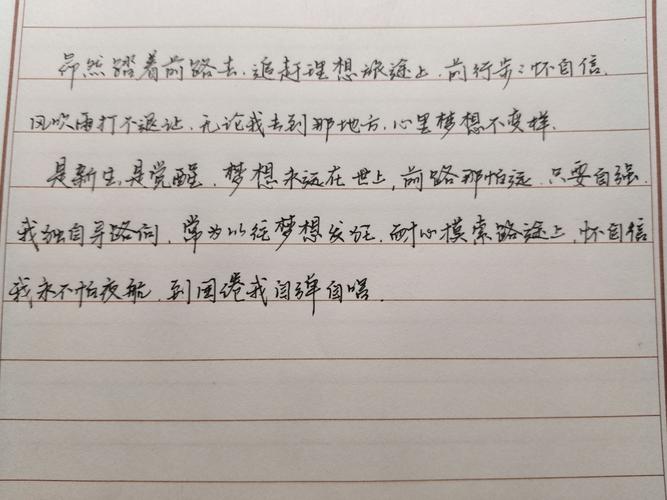 昂然踏着前路去,追赶理想旅途上,前行步々怀自信,
风吹雨打不退让,无论我去到那地方,心里梦想不变样,
是新生,是觉醒,梦想永远在世上,前路那怕远,只要自强
我独自寻路向,常为以往梦想发狂,耐心摸索路途上,怀自信
我永不怕夜航,到困倦我自弹自唱.